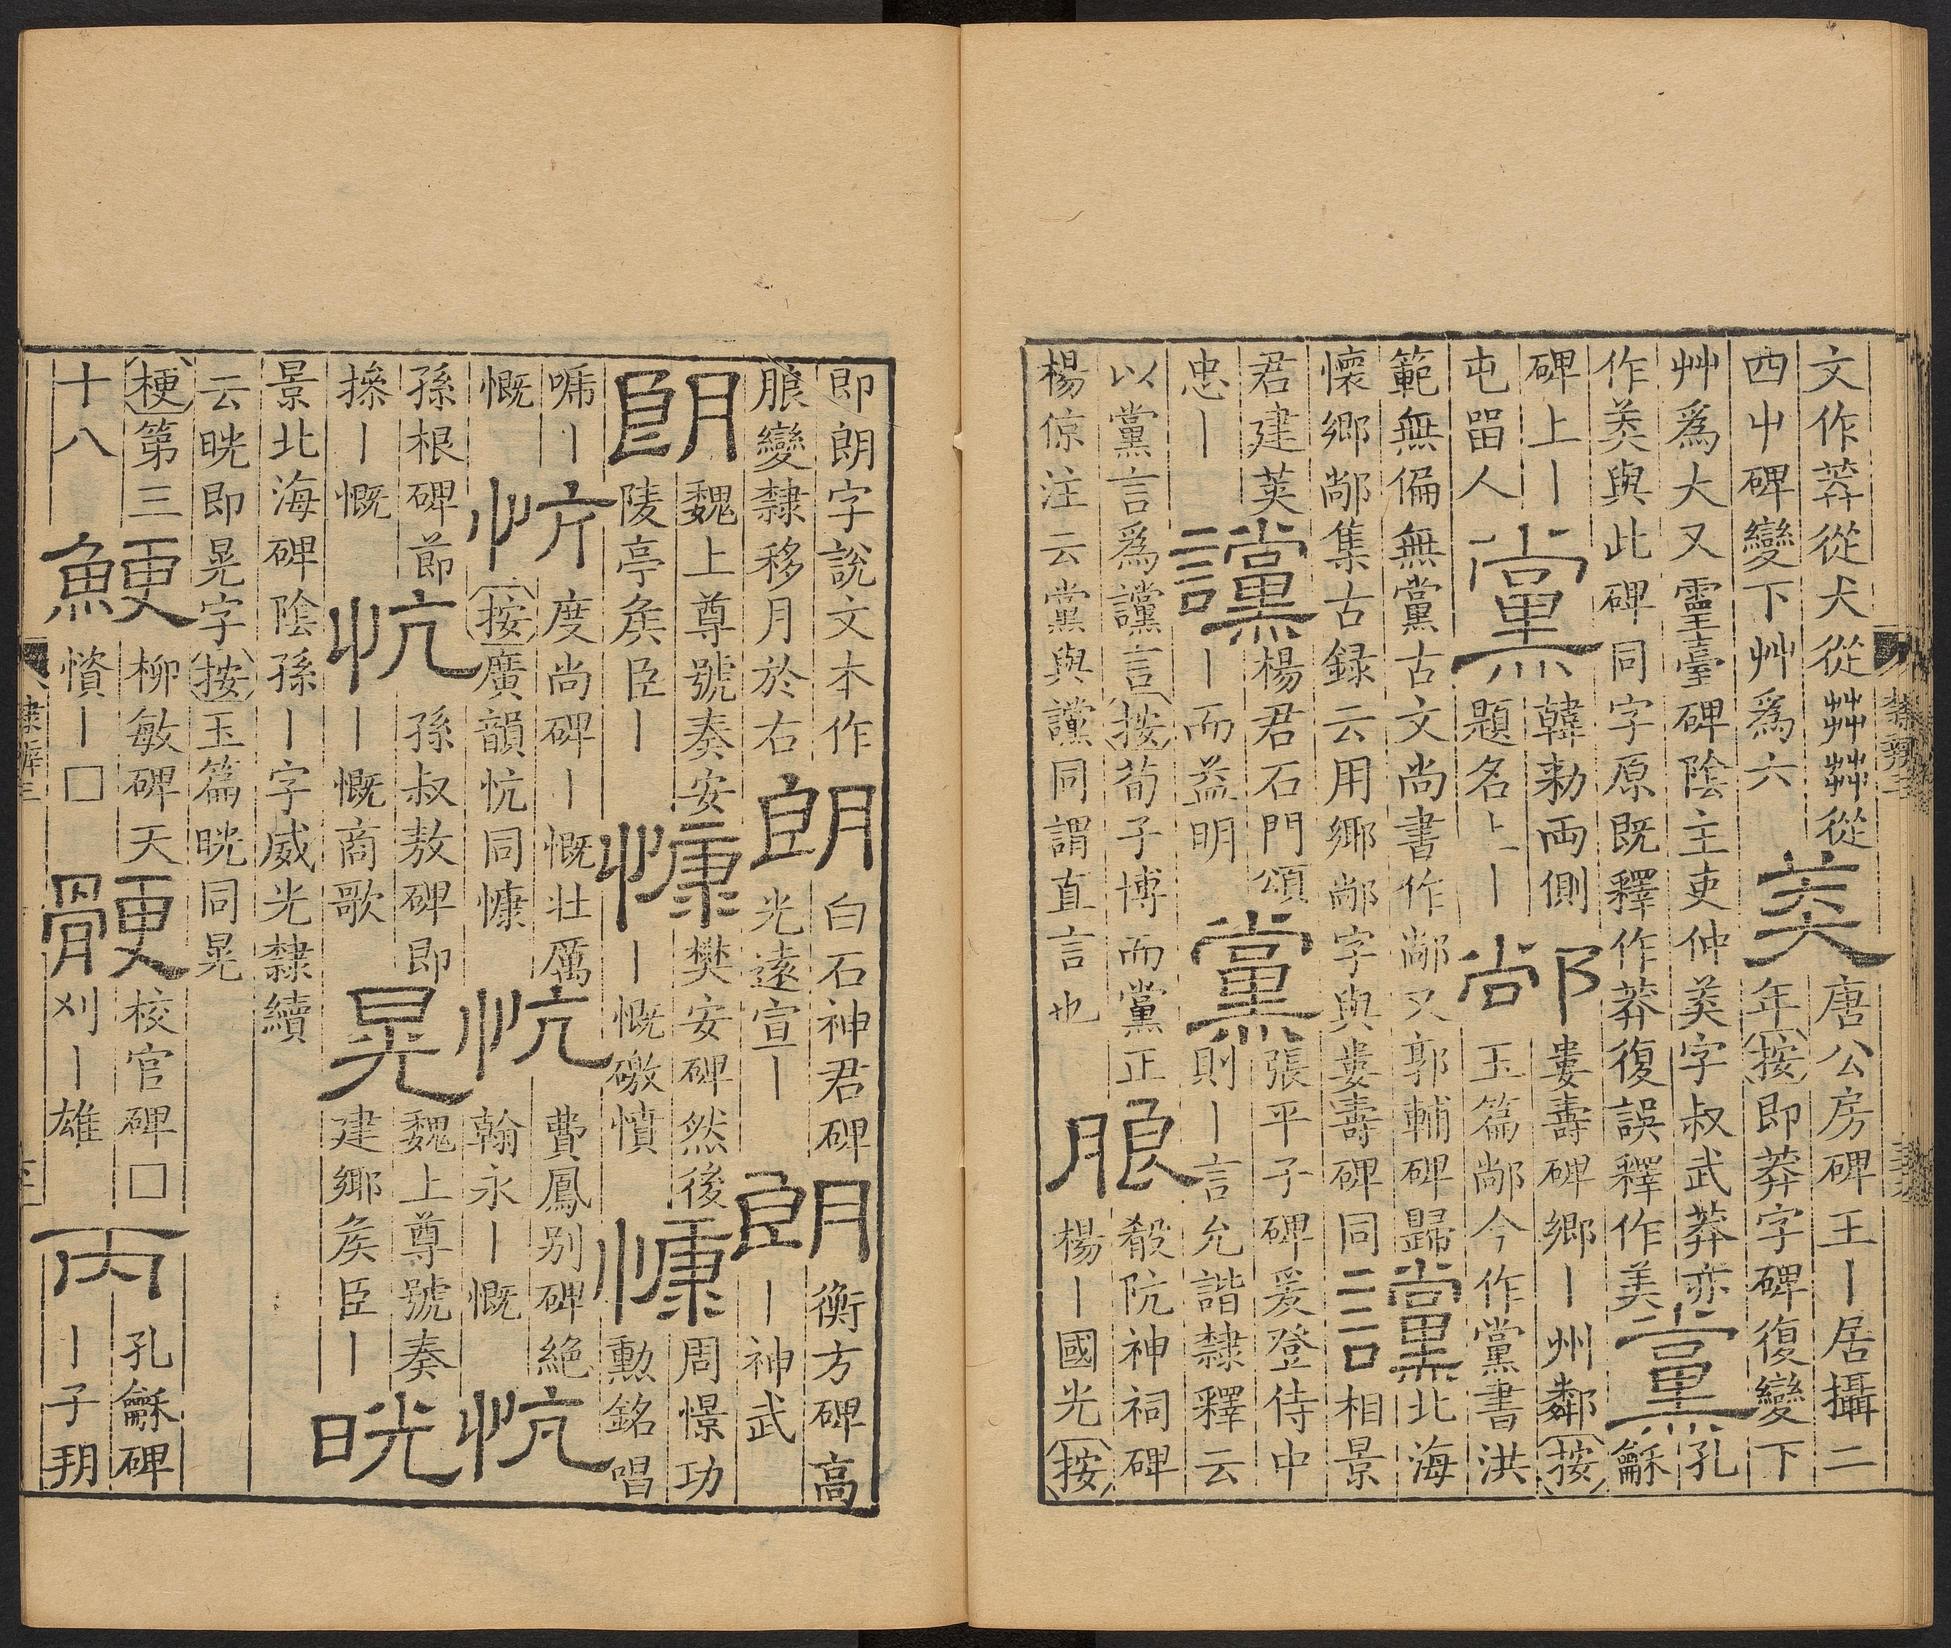 文作莽從犬從茻茻從
四屮碑變下艸爲六
莽
唐公房碑王｜居攝二
年按即莽字碑復變下
艸爲大又靈臺碑陰主吏仲羙字叔武莽亦
作羙與此碑同字原既釋作莽復誤釋作美
黨
孔
龢
碑上｜
屯留人
黨
韓勑両側
題名上｜
𨞰
婁壽碑鄉｜州鄰按
玉篇𨞰今作黨書洪
範無偏無黨古文尚書作𨞰又郭輔碑歸
懷鄉𨞰集古録云用鄉𨞰字與婁壽碑同
讜
北海
相景
君建荚
忠｜
讜
楊君石門頌
｜而益明
黨
張平子碑爰登侍中
則｜言允諧隸釋云
以黨言爲讜言按荀子博而黨正
楊倞注云黨與讜同謂直言也
朖
殽阬神祠碑
楊｜國光按
即朗字說文本作
朖變隸移月於右
朗
白石神君碑
光遠宣｜
朗
衡方碑高
｜神武
朗
魏上尊號奏安
陵亭矦臣｜
慷
樊安碑然後
｜慨礉憤
慷
周憬功
勲銘唱
嘑｜
慨
忼
度尚碑｜慨壯厲
按廣韻忼同慷
忼
費鳳別碑絶
翰永｜慨
忼
孫根碑節
操｜慨
忼
孫叔敖碑即
｜慨商歌
晃
魏上尊號奏
建鄉矦臣｜
晄
景北海碑陰孫｜字威光隸續
云晄即晃字按玉篇晄同晃
梗第三
十八
鯁
柳敏碑天
憤｜□
骾
校官碑□
刈｜雄
丙
孔龢碑
｜子玥